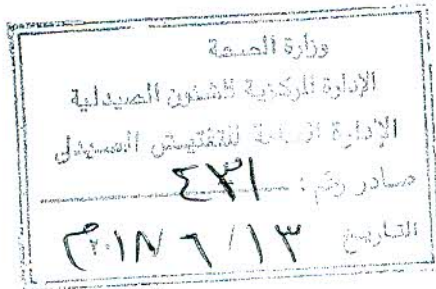 وزارة الصحة
الإدارة المركزية للشئون الصيدلية
الإدارة العامة للتفتيش الصيدلى
صادر رقم : ٤٣١
التاريخ ١٣ / ٦ / ٢٠١٨م